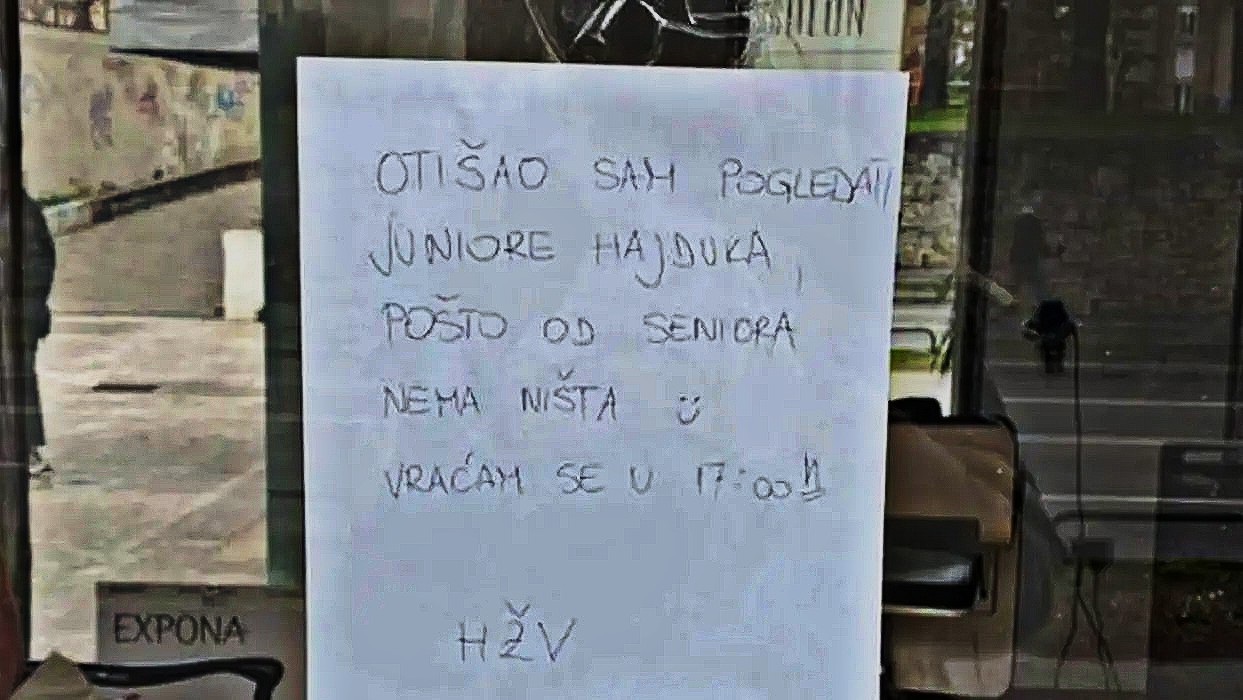 OTIŠAO SAM POGLEDATI
JUNIORE HAJDUKA,
POŠTO OD SENIORA
NEMA NIŠTA Ü
VRAĆAM SE U 17:00 H
HŽV
EXPONA